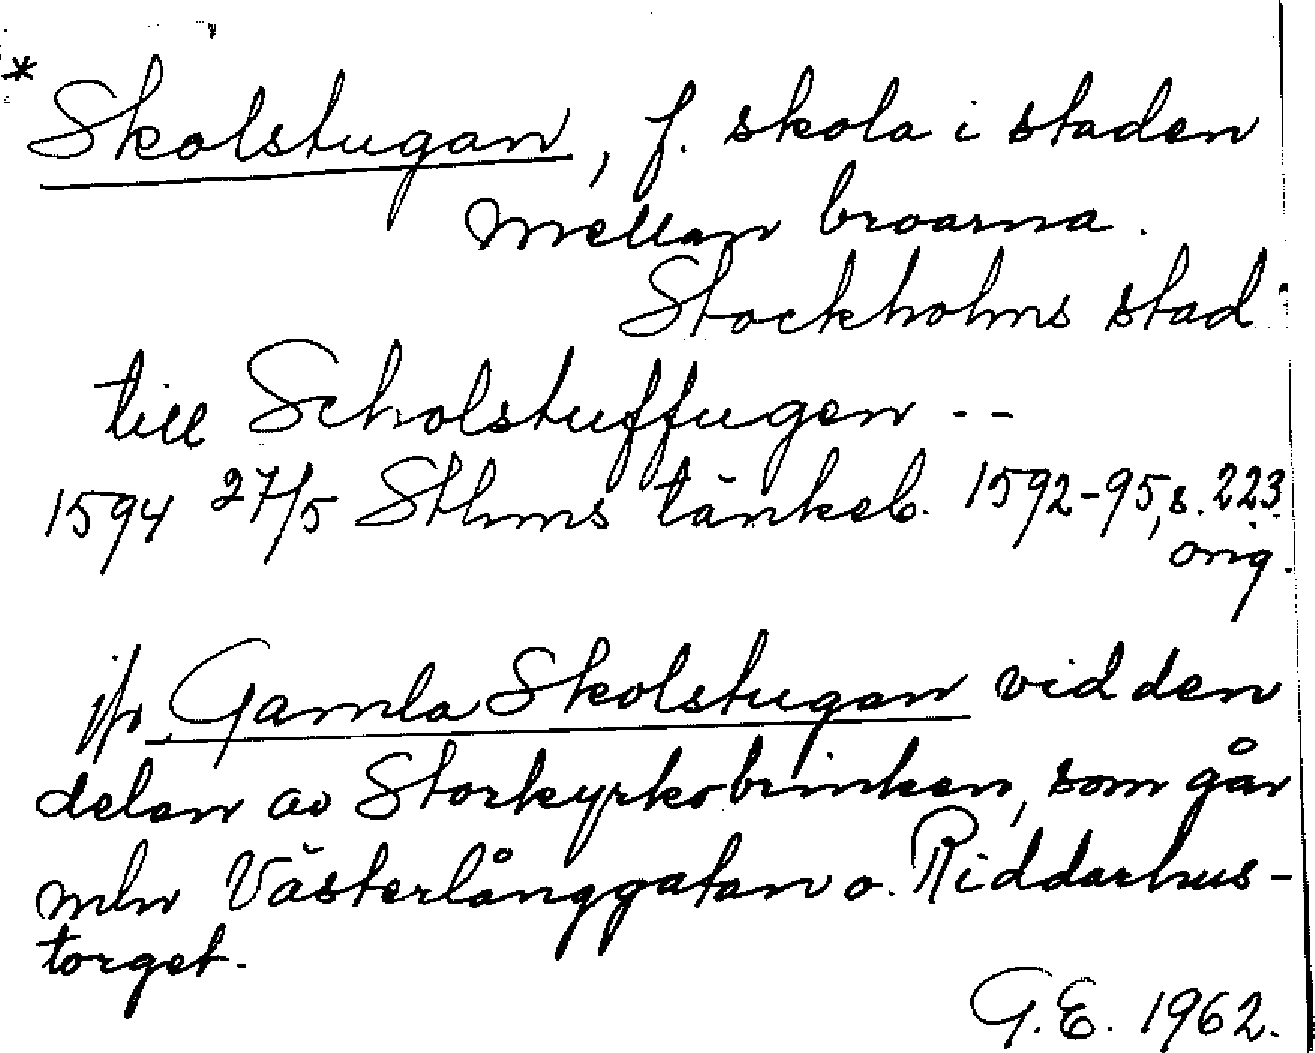 * Skolstugan, f. skola i staden
mellan broarna.
Stockholms stad
till Scholstuffugen --
1594 27/5 Sthms tänkeb. 1592-95, s. 223
orig.
jfr Gamla Skolstugan vid den
delen av Storkyrkobrinken, som går
mln Västerlånggatan o. Riddarhus-
torget.
G.E. 1962.